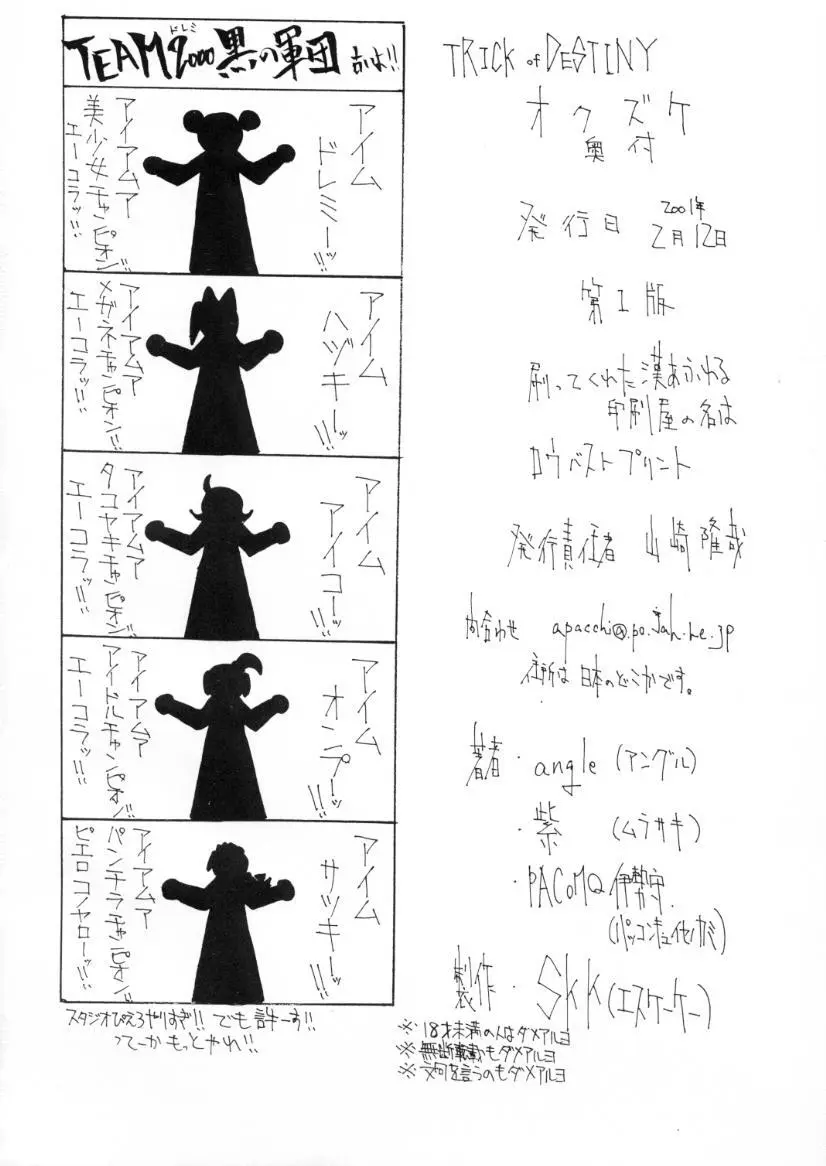 ドレミ
TEAM2000黒の軍団
アイム
ドレミーッ!!
アイアムア
美少女チャンピオン!!
エーコラッ!!!
アイム
ハヅキーッ!!!
アイアムア
メガネチャンピオン!!
エーコラッ!!!
アイム
アイコーッ!!!
アイアムア
タコヤキチャンピオン!!
エーコラッ!!!
アイム
オンプーッ!!!
アイアムア
アイドルチャンピオン!!
エーコラッ!!!
アイム
サツキーッ!!!
アイアムア
パンチラチャンピオン!!
ピエロコノヤローッ!!!
スタジオぴえろやりすぎ!! でも許ーす!!
つてーかもっとやれ!!
TRICK of DESTINY
オクズケ
奥付
発行日 2001年
2月12日
第1版
刷ってくれた漢あふれる
印刷屋の名は
ロウバストプリント
発行責任者 山崎隆哉
問合わせ apacchi@po.jah.ne.jp
住所は日本のどこかです。
著者・angle(アングル)
・紫 (ムラサキ)
・PACoMQ伊勢守
(パッコンキュイセノカミ)
製作・SKK(エスケーケー)
※18才未満の人はダメアルヨ
※無断転載もダメアルヨ
※文句を言うのもダメアルヨ